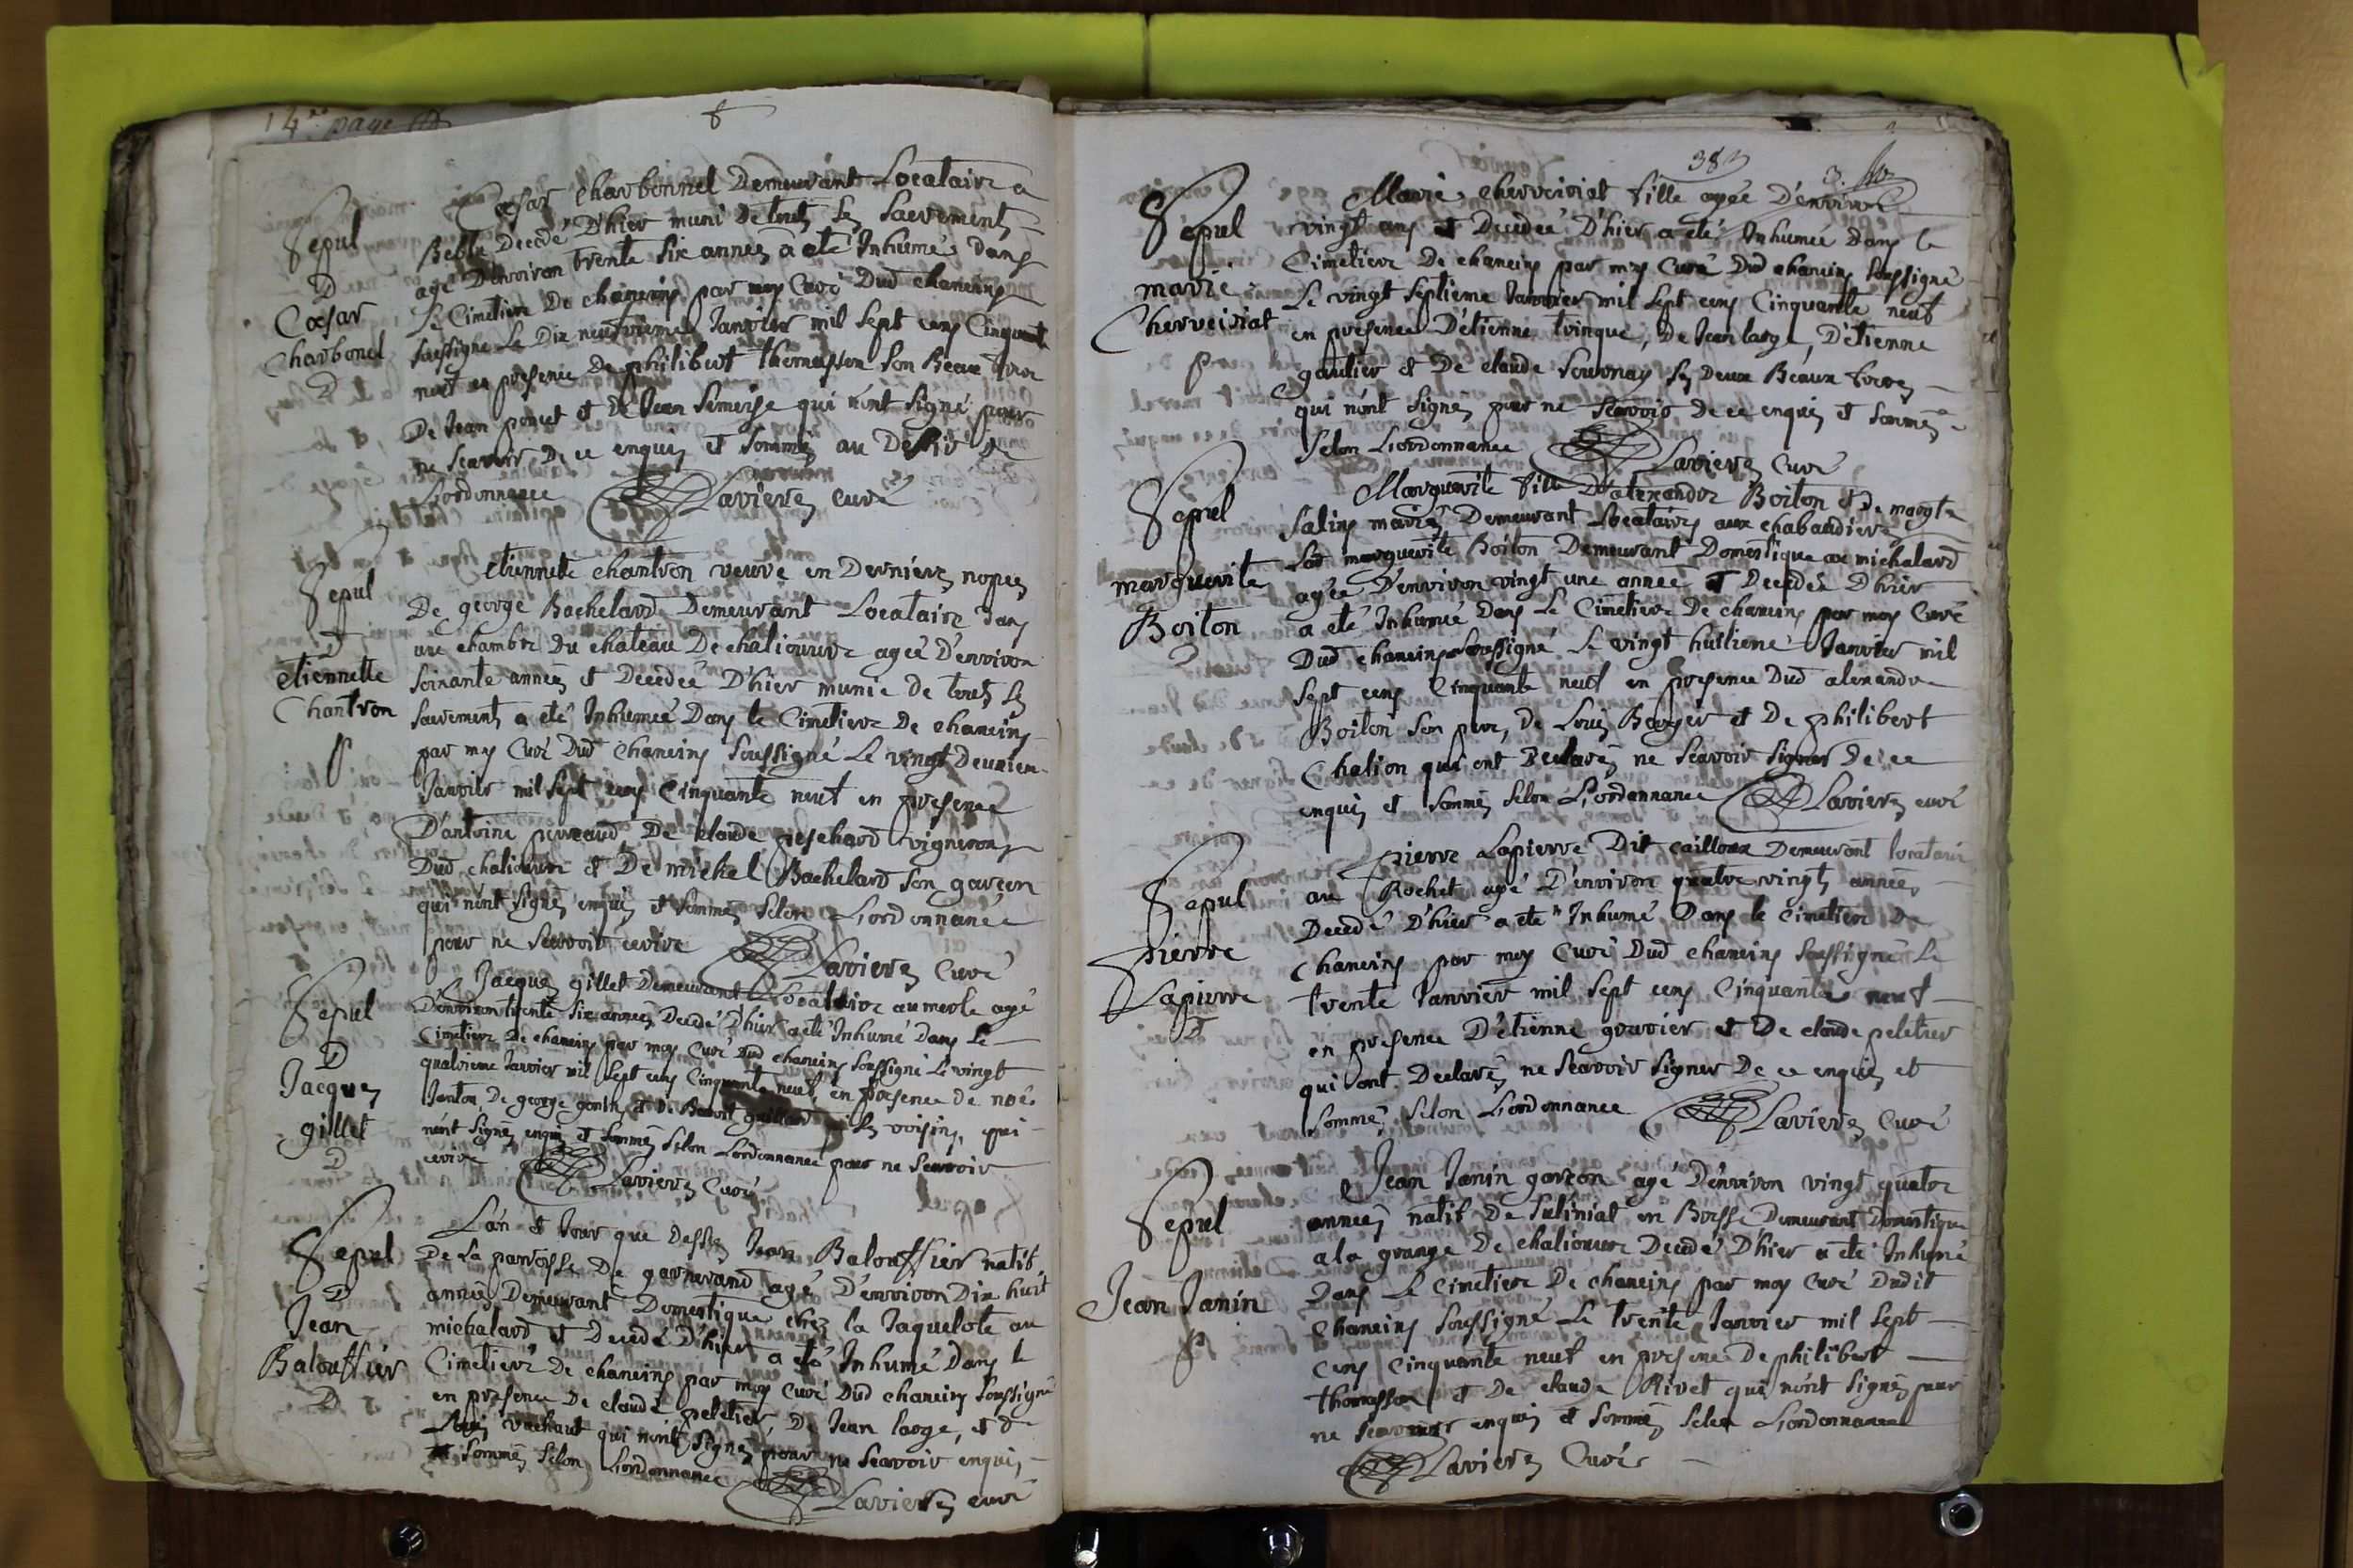 14me page
Sepul
D
Cæsar
Charbonel
D
Cæsar Charbonnel Demeurant Locataire a
Beble Decedé D'hier muni de touts les Sacrements
agé D'environ trente Six annéez a eté Inhumé dans
Le Cimetiere De chaneins par moy Curé Dud chaneins
Soussigné Le Dix neufvieme Janvier mil Sept cens Cinquante
neuf en presence De philibert thomasson Son Beau frere
De Jean ponet et de Jean Semerse qui n'ont Signé pour
ne Scavoir De ce enquis et Sommés au Desir de
L'ordonnance Lavierez curé
Sepul
D
etiennette
Chantron
etiennette chantron veuve en Dernierez nopcez
De george Bachelard Demeurant Locataire dans
une chambre Du chateau De chaliouvre ageé D'environ
Soixante annéez et Decedeé D'hier munie de touts Les
Sacrements a eté Inhumeé Dans le Cimetiere De chaneins
par moy Curé Dud Chaneins Soussigné Le vingt Deuxiem
Janvier mil Sept cens Cinquante neuf en presence
D'antoine perreaud De claude peschard vignerons
Dud chaliouvre et De michel Bachelard Son garçon
qui n'ont Signéz enquis et Sommez Selon L'ordonnance
pour ne Scavoir ecrire Lavierez Curé
Sepul
D
Jacquez
gillet
D
Jacquez gillet Demeurant Locataire au merle agé
D'environ trente Six annéez Decedé D'hier a eté Inhumé Dans Le
Cimetiere De chaneins par moy Curé Dud chaneins Soussigné Le vingt
quatrieme Janvier mil Sept cens Cinquante neuf, en presence de noé
Janton De george gonin et de Benoit guillard Les voisins, qui
n'ont Signéz enquis et Sommez Selon L'ordonnance pour ne Scavoir
ecrire Lavierez Curé
Sepul
D
Jean
Balouffier
D
L'an et Jour que Dessus Jean Balouffier natif
De La parroisse De garnerand agé D'environ Dix huit
annéez Demeurant Domestique chez la Jaquelote au
michalard et Decedé D'hier a eté Inhumé Dans le
Cimetiere De chaneins par moy Curé Dud chaneins Soussigné
en presence De claude peletier, De Jean large, et de
Louis vachaut qui n'ont Signéz pour ne Scavoir enquis
et Sommez Selon L'ordonnance Lavierez curé
383
3.
Sepul
marie
Cherveiriat
Marie cherveiriat fille ageé D'environ
vingt ans et Decedeé D'hier a eté Inhumeé Dans le
Cimetiere De chaneins par moy Curé Dud chaneins Soussigné
Le vingt Septieme Janvier mil Sept cens Cinquante neuf
en presence D'etienne trinque, De Jean large, D'etienne
gautier et De claude Sournay Ses Deux Beaux freres
qui n'ont Signéz pour ne Scavoir de ce enquis et Sommés
Selon L'ordonnance Lavierez Curé
Sepul
marguerite
Boiton
Marguerite fille D'alexandre Boiton et De margte
Salins mariéz Demeurant Locatairez aux chabaudierez
Lad marguerite Boiton Demeurant Domestique au michalard
agée D'environ vingt une année et Decedeé D'hier
a eté Inhumeé Dans Le Cimetiere De chaneins par moy Curé
Dud chaneins Soussigné Le vingt huitieme Janvier mil
Sept cens Cinquante neuf en presence Dud alexandre
Boiton Son pere, de Louis Berger et De philibert
Chalion qui ont Declaréz ne Scavoir Signer De ce
enquis et Sommez Selon L'ordonnance Lavierez curé
Sepul
pierre
Lapierre
D
pierre Lapierre Dit cailloux Demeurant locataire
au Rochet agé D'environ quatre vingts annéez
Decedé D'hier a eté Inhumé Dans le Cimetiere De
Chaneins par moy Curé Dud chaneins Soussigné Le
trente Janvier mil Sept cens Cinquante neuf
en presence D'etienne gravier et De claude peletier
qui ont Declaréz ne Scavoir Signer De ce enquis et
Sommez Selon L'ordonnance Lavierez Curé
Sepul
Jean Janin
Jean Janin garçon agé D'environ vingt quatre
annéez natif De Suliniat en Bresse Demeurant Domestique
a la grange De chaliouvre Decedé D'hier a eté Inhumé
Dans Le Cimetiere De chaneins par moy Curé Dudit
Chaneins Soussigné Le trente Janvier mil Sept
cens Cinquante neuf en presence De philibert
thomasson et De claude Rivet qui n'ont Signéz pour
ne Scavoir enquis et Sommez Selon L'ordonnance
Lavierez Curé